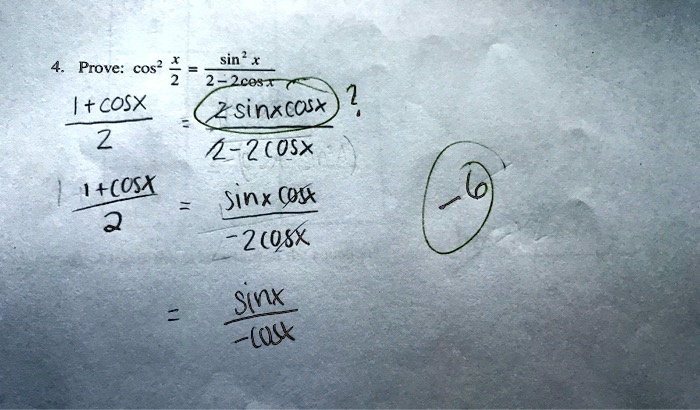 4. Prove: cos² x/2 = sin² x / 2 - 2cos x
1 + cosx / 2 = 2 sinxcosx / 2 - 2cosx ?
1 + cosx / 2 = sinx cosx / -2cosx
-6
= sinx / -cosx